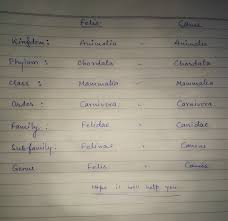 Felis Canis
Kingdom: Animalia - Animalia
Phylum: Chordata - Chordata
Class: Mammalia - Mammalia
Order: Carnivora - Carnivora
Family: Felidae - Canidae
Sub family: Felinae -
Genus Felis - Canis
Hope it will help you